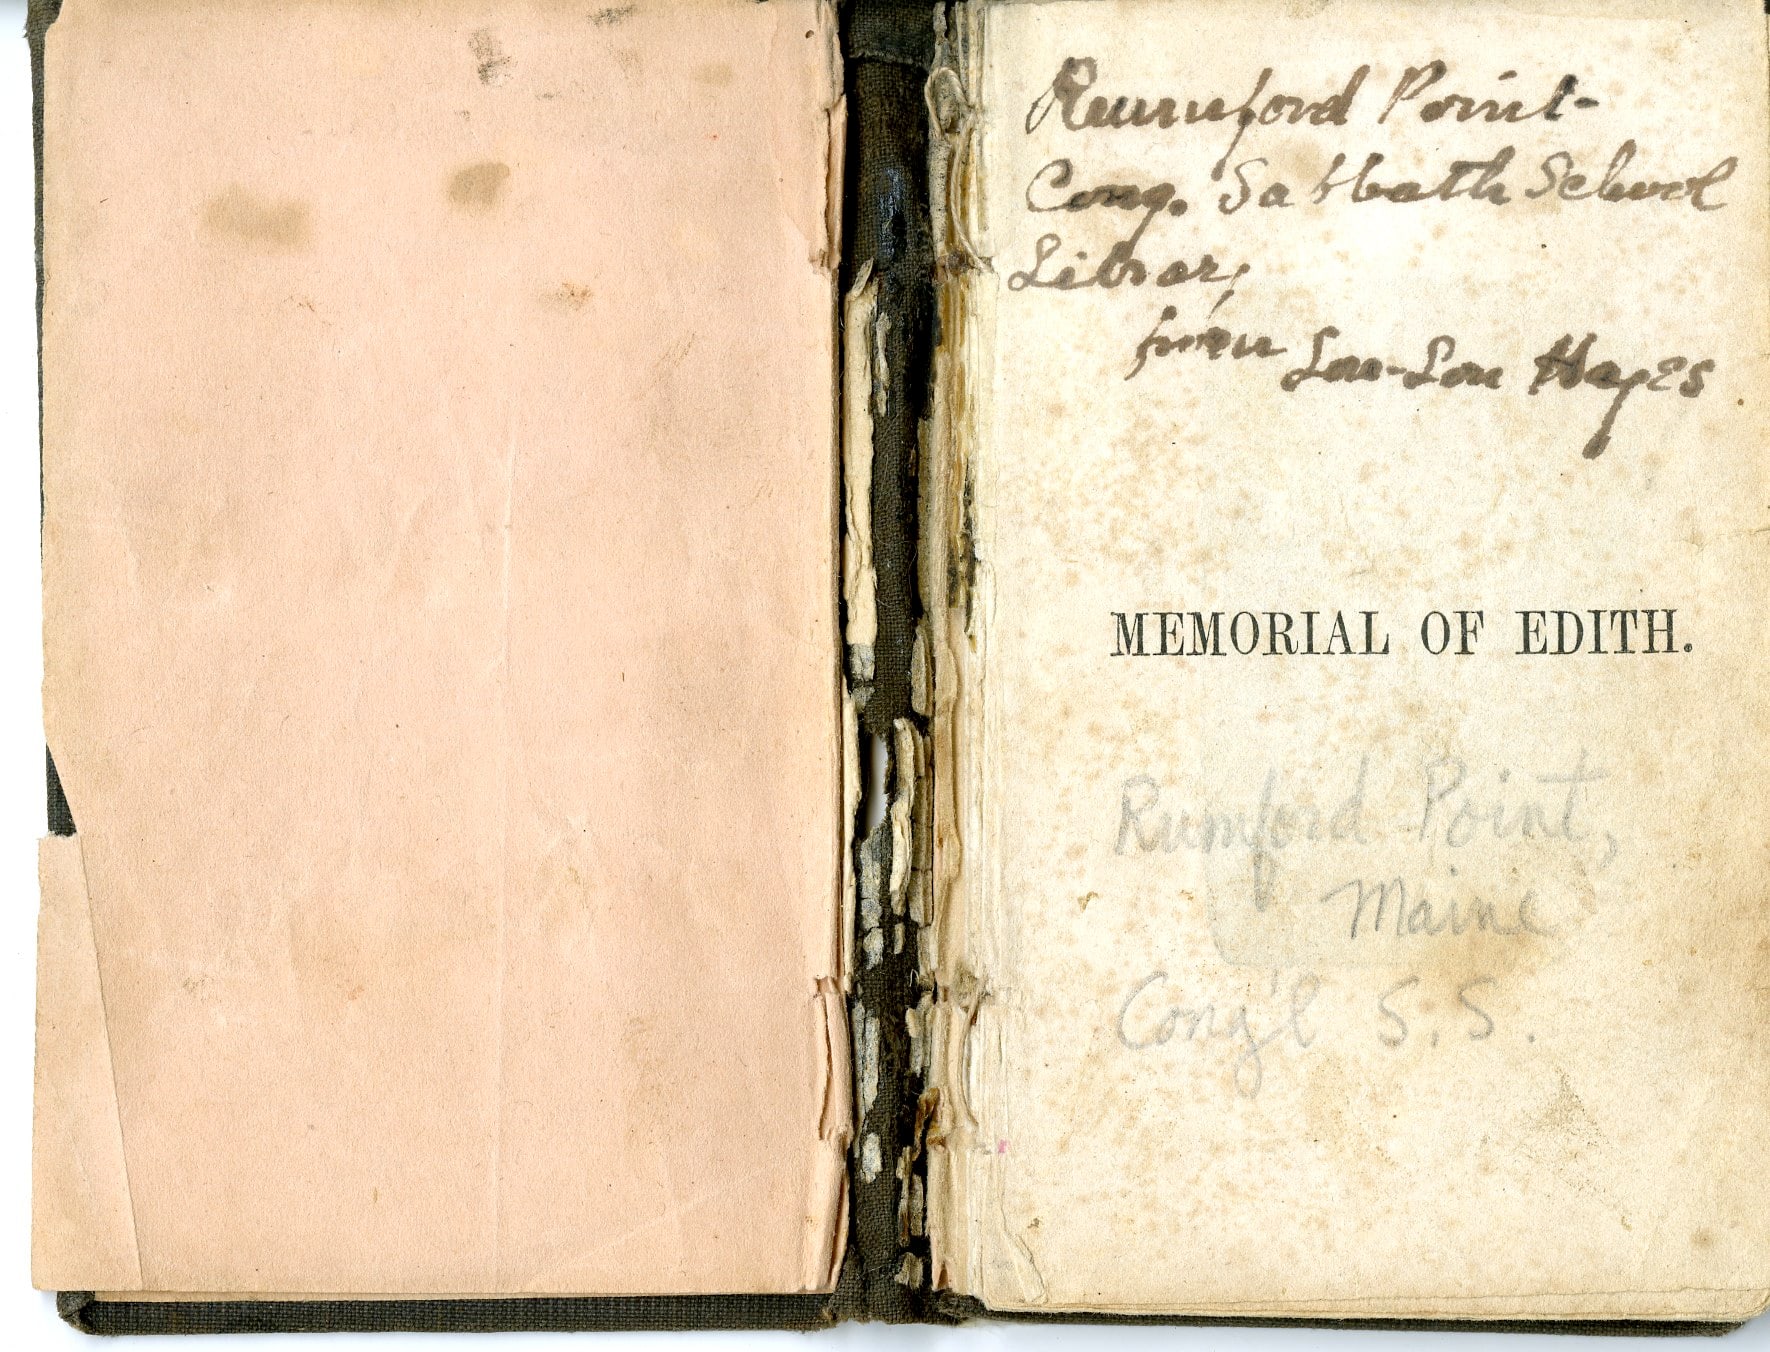 Rumford Point-
Cong. Sabbath School
Library
from Lou-Lou Hayes
MEMORIAL OF EDITH.
Rumford Point,
Maine
Cong'l S. S.